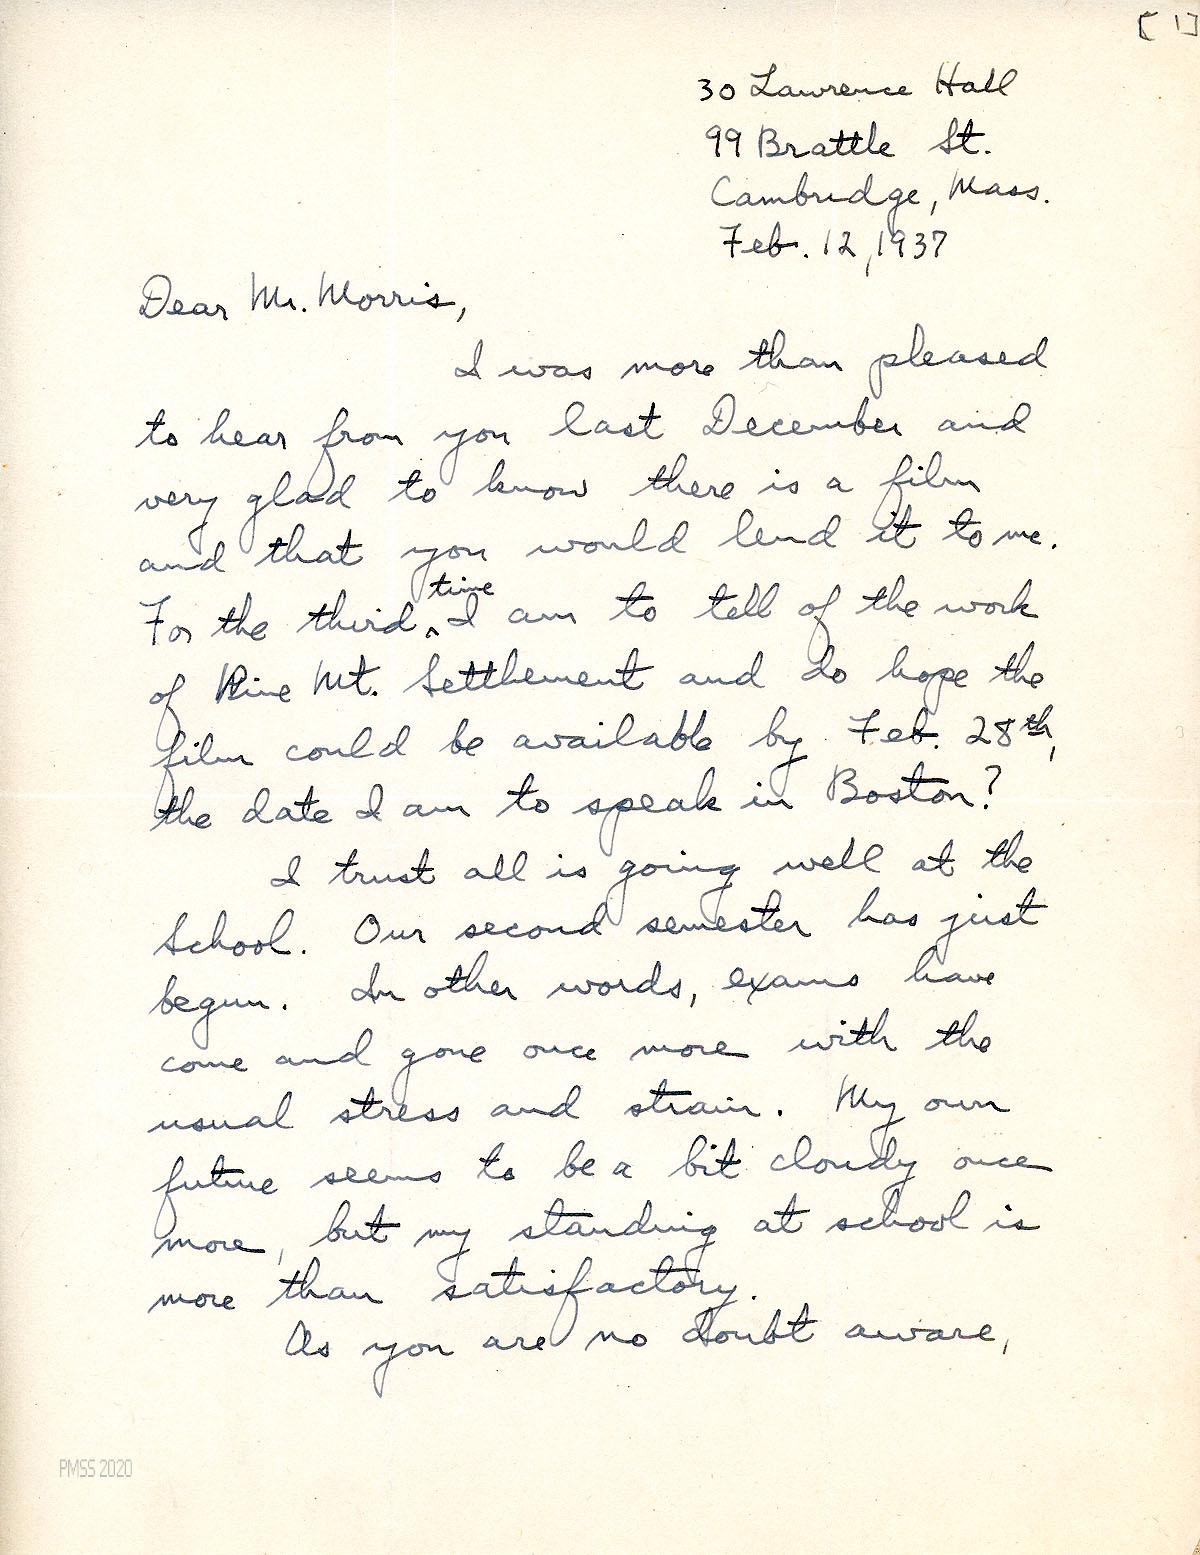 [1]
30 Lawrence Hall
99 Brattle St.
Cambridge, Mass.
Feb. 12, 1937
Dear Mr. Morris,
I was more than pleased
to hear from you last December and
very glad to know there is a film
and that you would lend it to me.
For the third ^time I am to tell of the work
of Pine Mt. Settlement and do hope the
film could be available by Feb. 28th,
the date I am to speak in Boston?
I trust all is going well at the
School. Our second semester has just
begun. In other words, exams have
come and gone once more with the
usual stress and strain. My own
future seems to be a bit cloudy once
more, but my standing at school is
more than satisfactory.
As you are no doubt aware,
PMSS 2020